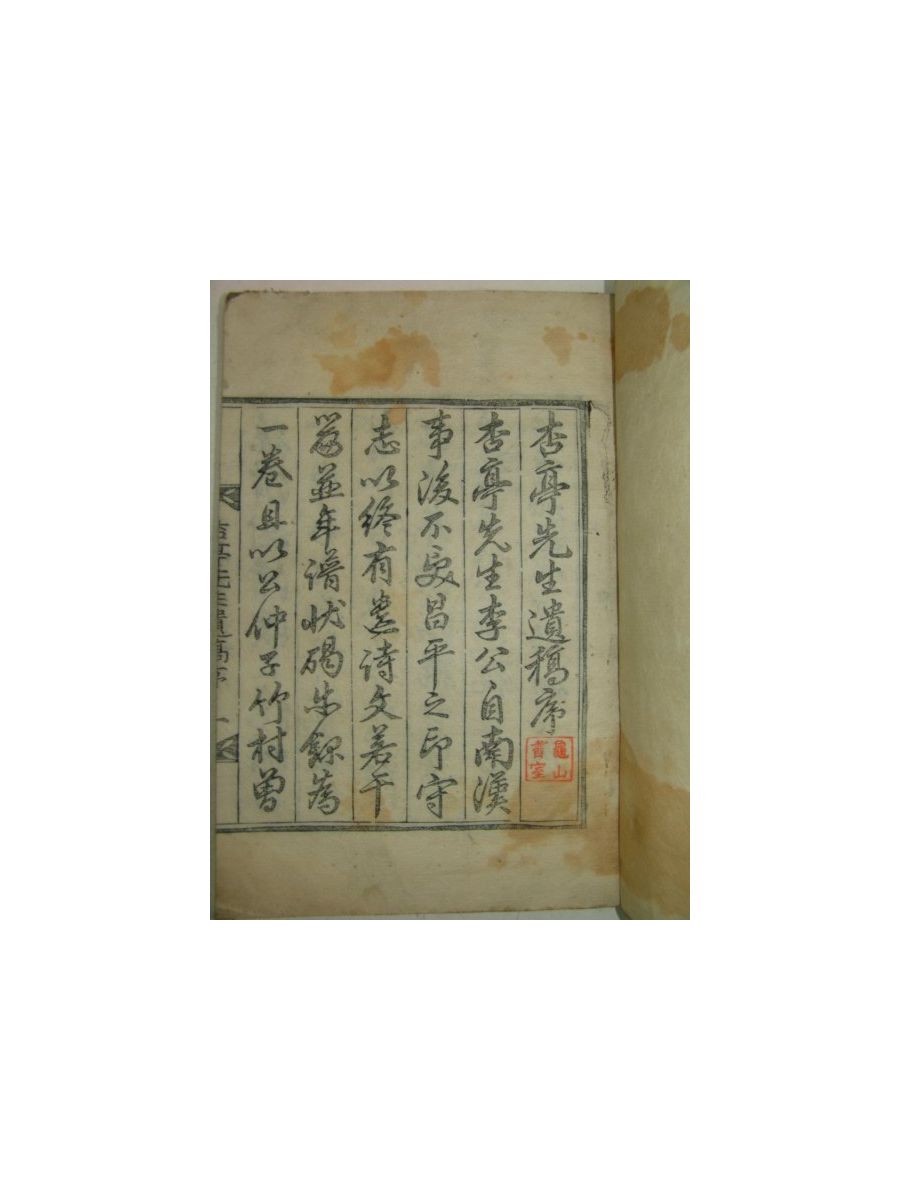 杏亭先生遺稿序
龜山
書室
杏亭先生李公自南漢
事後不受昌平之印守
志以終有遺詩文若干
篇並年譜狀碣步錄為
一卷且以公仲子竹村曾
杏亭先生遺稿序 一